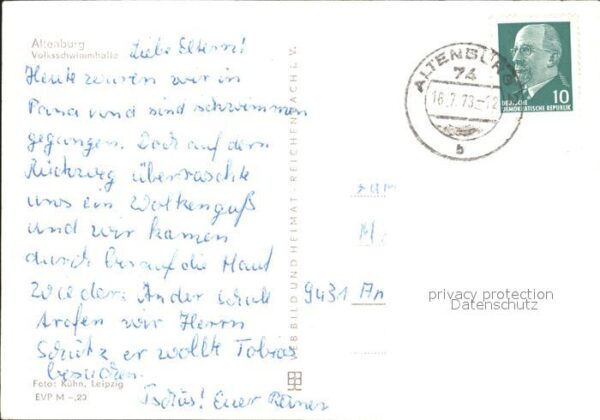 Altenburg
Volksschwimmhalle
Liebe Eltern!
Heute waren wir in
Pana und sind schwimmen
gegangen. Doch auf dem
Rückweg überraschte
uns ein Wolkenguß
und wir kamen
durch bis auf die Haut
wieder. An der
trafen wir Herrn
Schütz er wollte Tobias
besuchen.
Tschüs! Euer Reiner
Foto: Kühn, Leipzig
EVP M -,23
VEB BILD UND HEIMAT · REICHENBACH I. V.
ALTENBURG 1
74
16.7.73-12
b
DEUTSCHE
DEMOKRATISCHE REPUBLIK
10
9431
privacy protection
Datenschutz